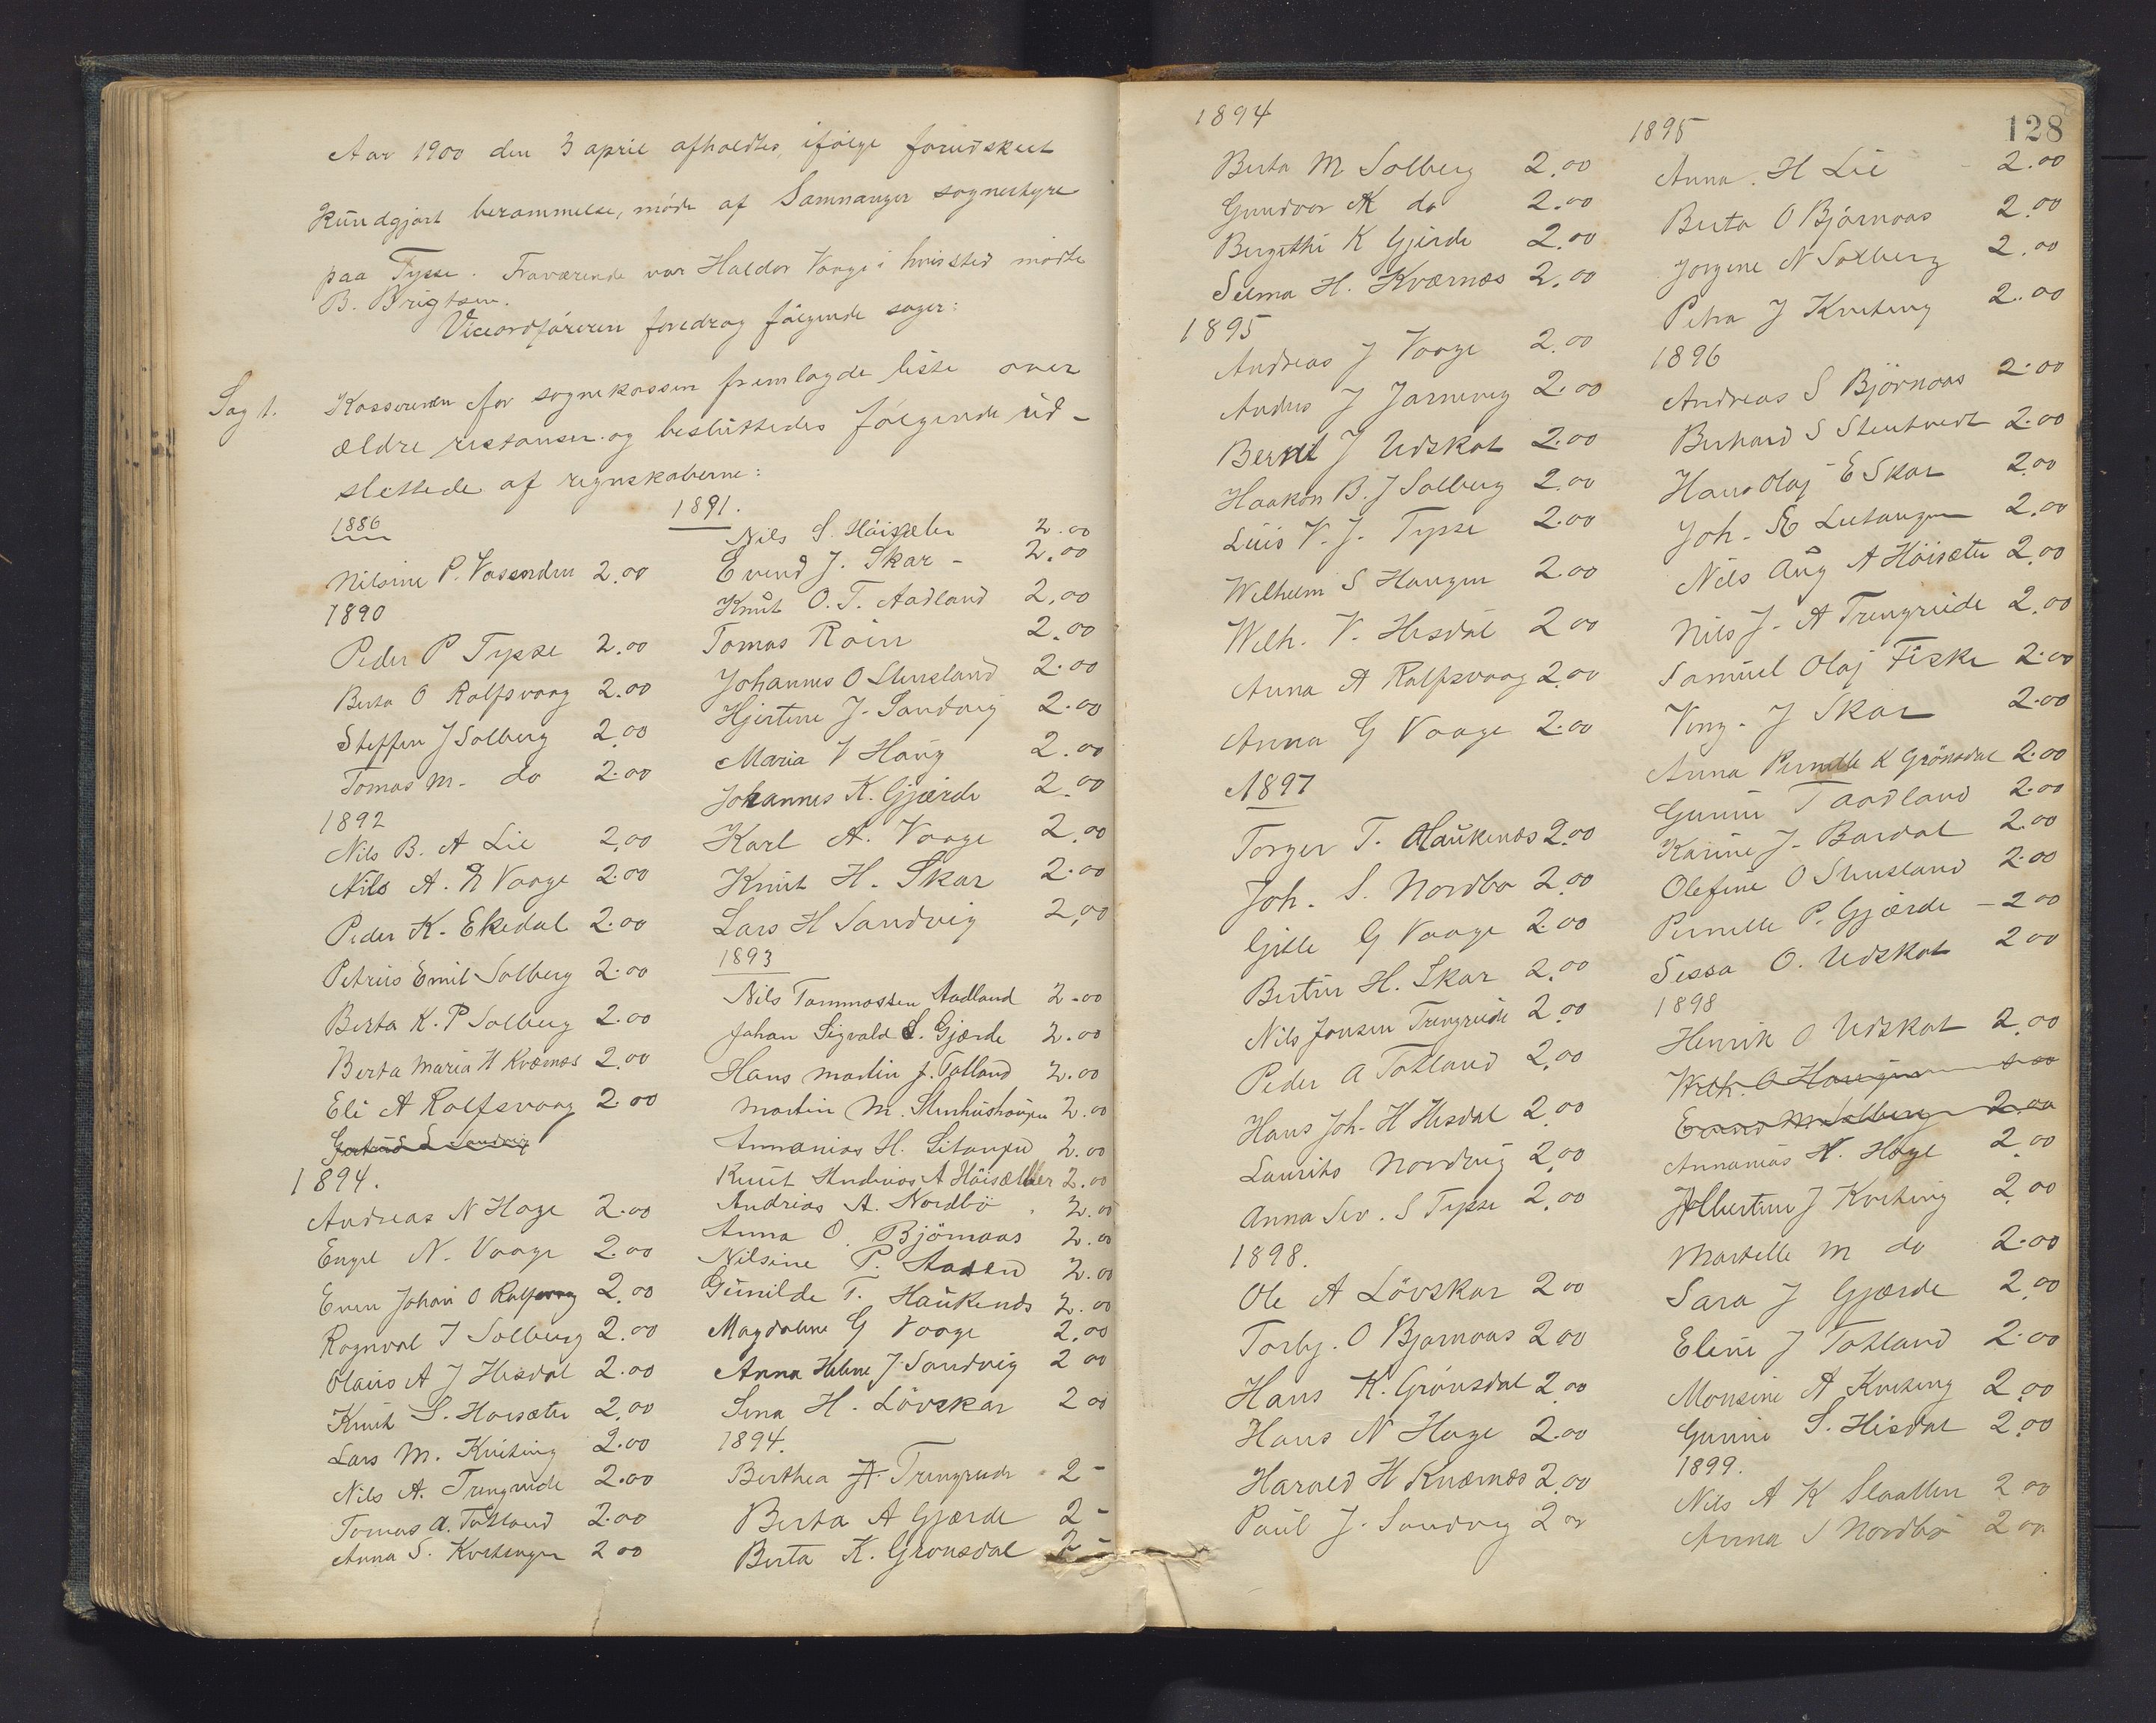 Aar 1900 den 3 april afholdtes, ifølge forudskeet
kundgjort berammelse, møde af Samnanger sognestyre
paa Tysse. Fraværende var Haldor Vaage i hvis sted mødte
B. Brigtsen.
Viceordføreren foredrog følgende sager:
Sag 1. Kassereren for sognekassen fremlagde liste over
ældre restanser og besluttedes følgende ud-
slettede af regnskaberne:
1886
Nilsine P. Vassenden 2.00
1890
Peder P Tysse 2.00
Berta O Rolfsvaag 2.00
Steffen J Solberg 2.00
Tomas M. do 2.00
1892
Nils B. A Lie 2.00
Nils A. N Vaage 2.00
Peder K. Ekedal 2.00
Petrus Emil Solberg 2.00
Berta K. P Solberg 2.00
Berta Maria H Kværnæs 2.00
Eli A Rolfsvaag 2.00
Gertrud L Sandvig
1894.
Andreas N Hage 2.00
Engel N. Vaage 2.00
Even Johan O Rolfsvaag 2.00
Ragnval J Solberg 2.00
Olaus A J Hisdal 2.00
Knut S. Høisæter 2.00
Lars M. Kviting 2.00
Nils A. Trengreide 2.00
Tomas A. Totland 2.00
Anna S. Kvitingen 2 00
1891.
Nils S. Høisæter 2.00
Evend J. Skar - 2.00
Knut O. T. Aadland 2.00
Tomas Røen 2.00
Johannes O Stensland 2.00
Hjertine J. Sandvig 2.00
Maria V Haug 2.00
Johannes K. Gjærde 2.00
Karl A. Vaage 2.00
Knut H. Skar 2.00
Lars H Sandvig 2.00
1893
Nils Tommassen Aadland 2.00
Johan Sigvald S. Gjærde 2.00
Hans Martin J. Totland 2.00
Martin M. Stenhushaugen 2.00
Annanias H. Litangen 2.00
Knut Andreas A Høisæther 2.00
Andrias A. Nordbø 2.00
Anna O. Bjørnaas 2.00
Nilsine P. Aasen 2.00
Gunilde T. Haukenæs 2.00
Magdalene G Vaage 2.00
Anna Helene J. Sandvig 2 00
Sina H. Løvskar 2 00
1894.
Berthea A. Trengreide 2 -
Berta A Gjærde 2 -
Berta K. Grønsdal 2 -
128
1894
Berta M Solberg 2.00
Gundvor K do 2.00
Bergithe K Gjerde 2.00
Selma H. Kværnæs 2.00
1895
Andreas J Vaage 2.00
Anders J Jarnevig 2.00
Bernt J Udskot 2.00
Haakon B. J Solberg 2.00
Luis V. J. Tysse 2.00
Wilhelm S Haugen 2.00
Wilh. V. Hisdal 2 00
Anna A Rolfsvaag 2.00
Anna G Vaage 2.00
1897
Torger T. Haukenæs 2.00
Joh. S. Nordbø 2.00
Gjelle G Vaage 2.00
Bertin H. Skar 2.00
Nils Jonsen Trengreide 2.00
Peder A Totland 2.00
Hans Joh. H Hisdal 2.00
Laurits Nordvig 2.00
Anna Sev. S Tysse 2.00
1898.
Ole A Løvskar 2 00
Torbj. O Bjørnaas 2 00
Hans K. Grønsdal 2.00
Hans N Hage 2.00
Harald H Kværnæs 2.00
Paul J. Sandvig 2 00
1895
Anna H Lie 2.00
Berta O Bjørnaas 2.00
Jorgine N Solberg 2.00
Petra J Kviting 2.00
1896
Andreas S Bjørnaas 2.00
Berhard S Stentvedt 2.00
Hans Olaj E Skar 2.00
Joh. E Litangen 2.00
Nils Aug A Høisæter 2.00
Nils J. A Trengreide 2.00
Samuel Olaj Fiske 2.00
Ving. J Skar 2.00
Anna Pernelle K Grønsdal 2.00
Gunni T Aadland 2.00
Karine J. Bardal 2.00
Olefine O Stensland 2.00
Pernelle P. Gjærde - 2 00
Sessa O. Udskot 2 00
1898
Henrik O Udskot 2.00
Wilh. O Haugen 2.00
Evend M Solberg 2.00
Annanias H. Hage 2.00
Albertine J Kviting 2.00
Martelle M do 2.00
Sara J Gjærde 2.00
Eline J Totland 2.00
Monsine A Kviting 2.00
Gunni S. Hisdal 2.00
1899.
Nils A K Slaatten 2 00
Anna S Nordbø 2 00.